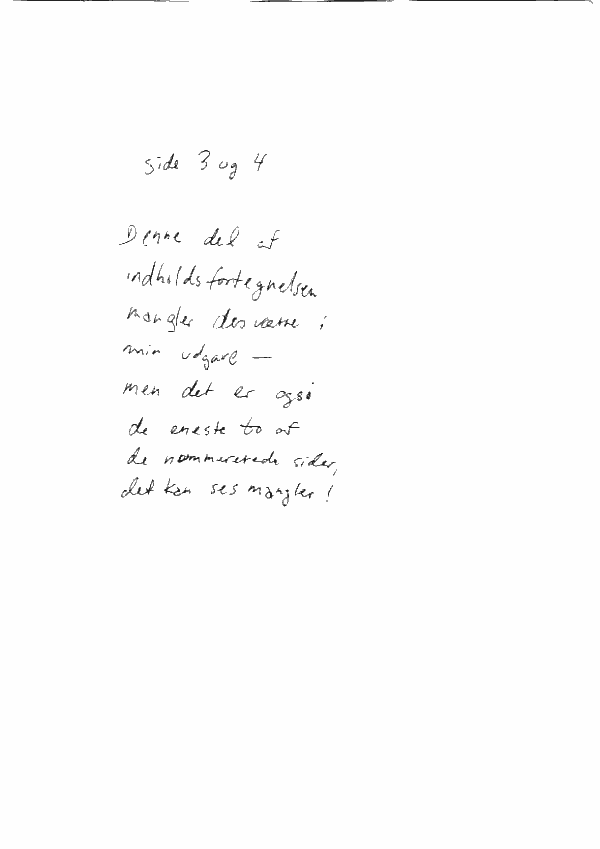 side 3 og 4
Denne del af
indholdsfortegnelsen
mangler desværre i
min udgave —
men det er også
de eneste to af
de nummererede sider,
det kan ses mangler!